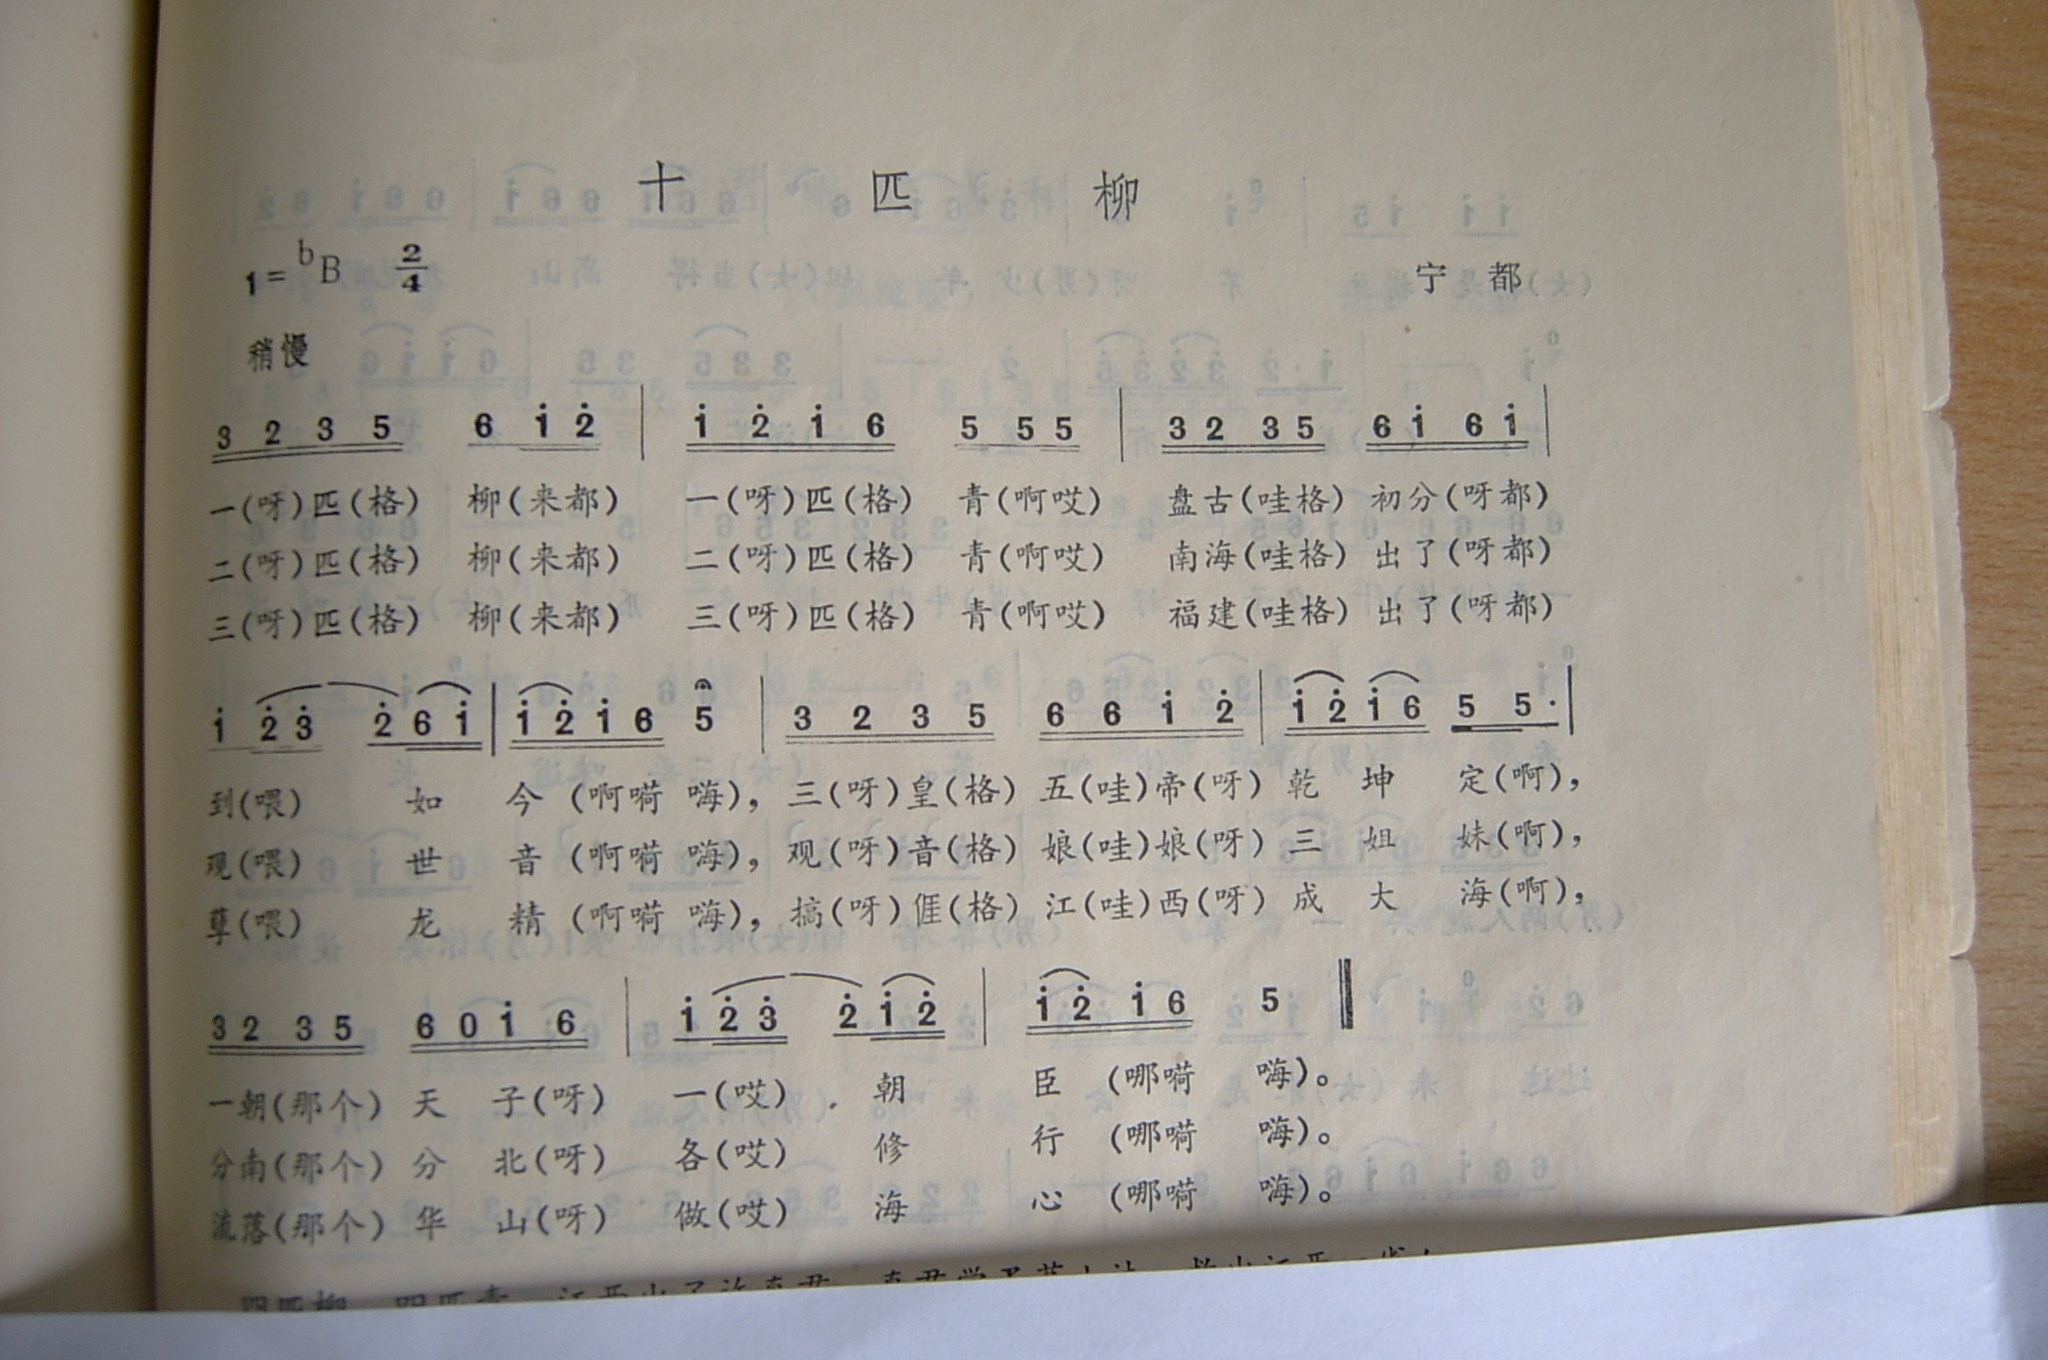 十 匹 柳
1=bB 2/4
宁 都
稍慢
3 2 3 5 6 i̇ 2̇ | i̇ 2̇ i̇ 6 5 5 5 | 3 2 3 5 6 i̇ 6 i̇ |
一(呀)匹(格) 柳(来都) 一(呀)匹(格) 青(啊哎) 盘古(哇格) 初分(呀都)
二(呀)匹(格) 柳(来都) 二(呀)匹(格) 青(啊哎) 南海(哇格) 出了(呀都)
三(呀)匹(格) 柳(来都) 三(呀)匹(格) 青(啊哎) 福建(哇格) 出了(呀都)
i̇ 2̇ 3̇ 2̇ 6 i̇ | i̇ 2̇ i̇ 6 5 | 3 2 3 5 6 6 i̇ 2̇ | i̇ 2̇ i̇ 6 5 5 · |
到(喂) 如 今 (啊嗬 嗨), 三(呀)皇(格) 五(哇)帝(呀) 乾 坤 定(啊),
观(喂) 世 音 (啊嗬 嗨), 观(呀)音(格) 娘(哇)娘(呀) 三 姐 妹(啊),
孽(喂) 龙 精 (啊嗬 嗨), 搞(呀)𠊎(格) 江(哇)西(呀) 成 大 海(啊),
3 2 3 5 6 0 i̇ 6 | i̇ 2̇ 3̇ 2̇ i̇ 2̇ | i̇ 2̇ i̇ 6 5
一朝(那个) 天 子(呀) 一(哎) 朝 臣 (哪嗬 嗨)。
分南(那个) 分 北(呀) 各(哎) 修 行 (哪嗬 嗨)。
流落(那个) 华 山(呀) 做(哎) 海 心 (哪嗬 嗨)。
四匹柳